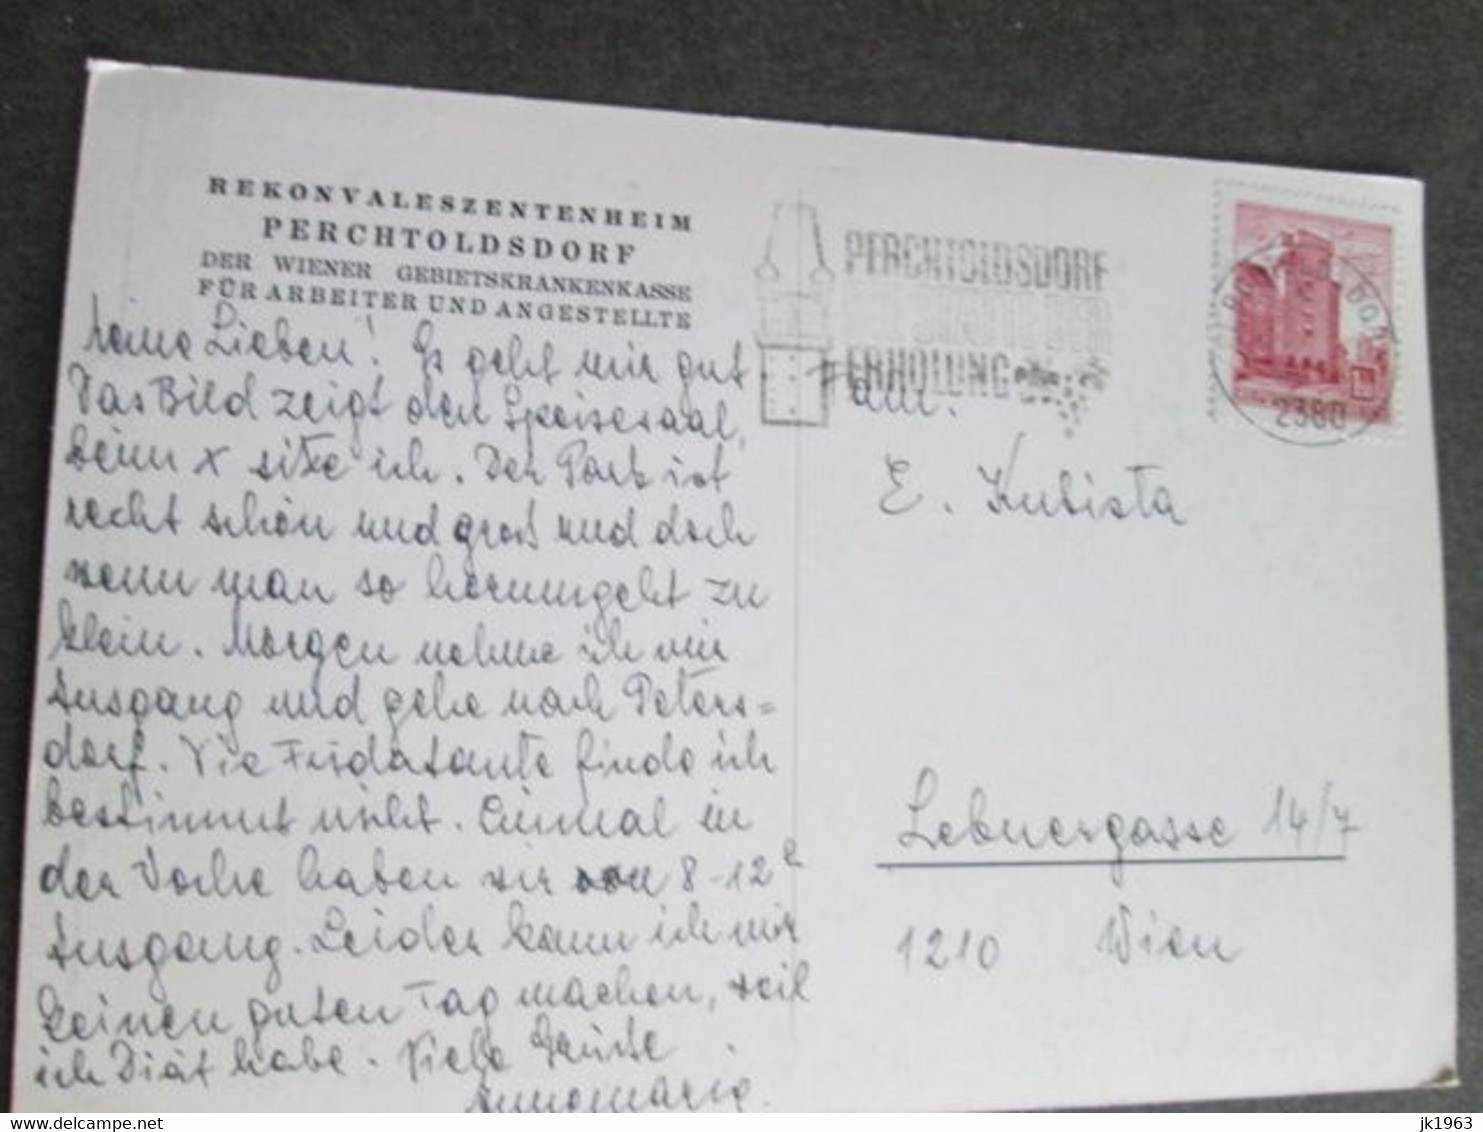 REKONVALESZENTENHEIM
PERCHTOLDSDORF
DER WIENER GEBIETSKRANKENKASSE
FÜR ARBEITER UND ANGESTELLTE
Meine Lieben! Es geht mir gut
Das Bild zeigt den Speisesaal,
beim x sitze ich. Der Park ist
recht schön und groß und doch
wenn man so herumgeht zu
klein. Morgen nehme ich mir
Ausgang und gehe nach Peters=
dorf. Die Fridatante finde ich
bestimmt nicht. Einmal in
der Woche haben wir von 8-12h
Ausgang. Leider kann ich mir
keinen guten Tag machen, weil
ich Diät habe. Viele Grüße
Annemarie.
PERCHTOLDSDORF
ERHOLUNG
2380
An.
E. Kubista
Lebnergasse 14/7
1210 Wien
delcampe.net
jk1963